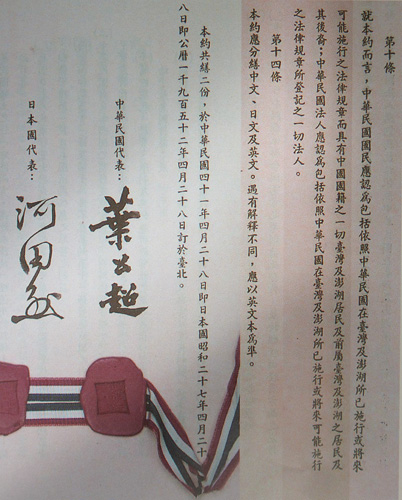 第十條
就本約而言，中華民國國民應認爲包括依照中華民國在臺灣及澎湖所已施行或將來
可能施行之法律規章而具有中國國籍之一切臺灣及澎湖居民及前屬臺灣及澎湖之居民及
其後裔；中華民國法人應認爲包括依照中華民國在臺灣及澎湖所已施行或將來可能施行
之法律規章所登記之一切法人。
第十四條
本約應分繕中文、日文及英文。遇有解釋不同，應以英文本爲準。
本約共繕二份，於中華民國四十一年四月二十八日即日本國昭和二十七年四月二十
八日即公曆一千九百五十二年四月二十八日訂於臺北。
中華民國代表：
葉公超
日本國代表：
河田烈